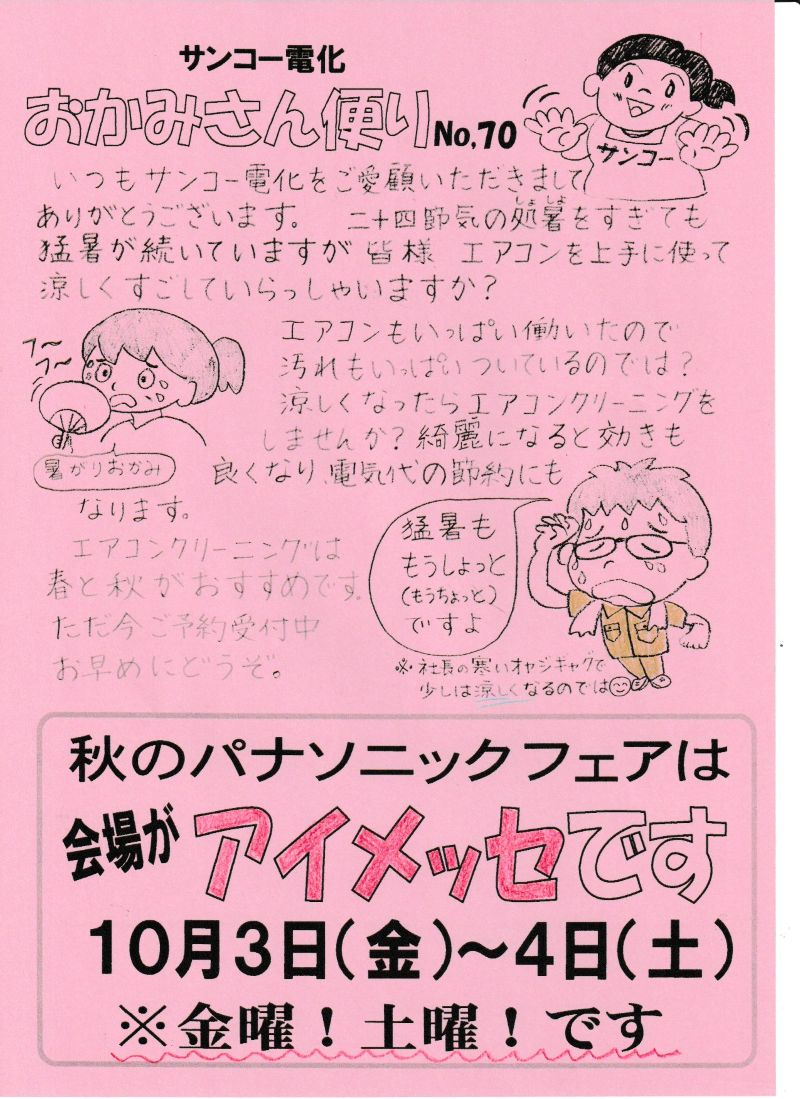 サンコー電化
おかみさん便り No.70
サンコー
いつもサンコー電化をご愛顧いただきまして
ありがとうございます。 二十四節気の処暑をすぎても
しょしょ
猛暑が続いていますが 皆様 エアコンを上手に使って
涼しくすごしていらっしゃいますか?
フ〜
フ〜
暑がりおかみ
エアコンもいっぱい働いたので
汚れもいっぱいついているのでは?
涼しくなったらエアコンクリーニングを
しませんか?綺麗になると効きも
良くなり、電気代の節約にも
なります。
エアコンクリーニングは
春と秋がおすすめです。
ただ今ご予約受付中
お早めにどうぞ。
猛暑も
もうしょっと
(もうちょっと)
ですよ
※社長の寒いオヤジギャグで
少しは涼しくなるのでは
秋のパナソニックフェアは
会場がアイメッセです
10月3日(金)〜4日(土)
※金曜!土曜!です